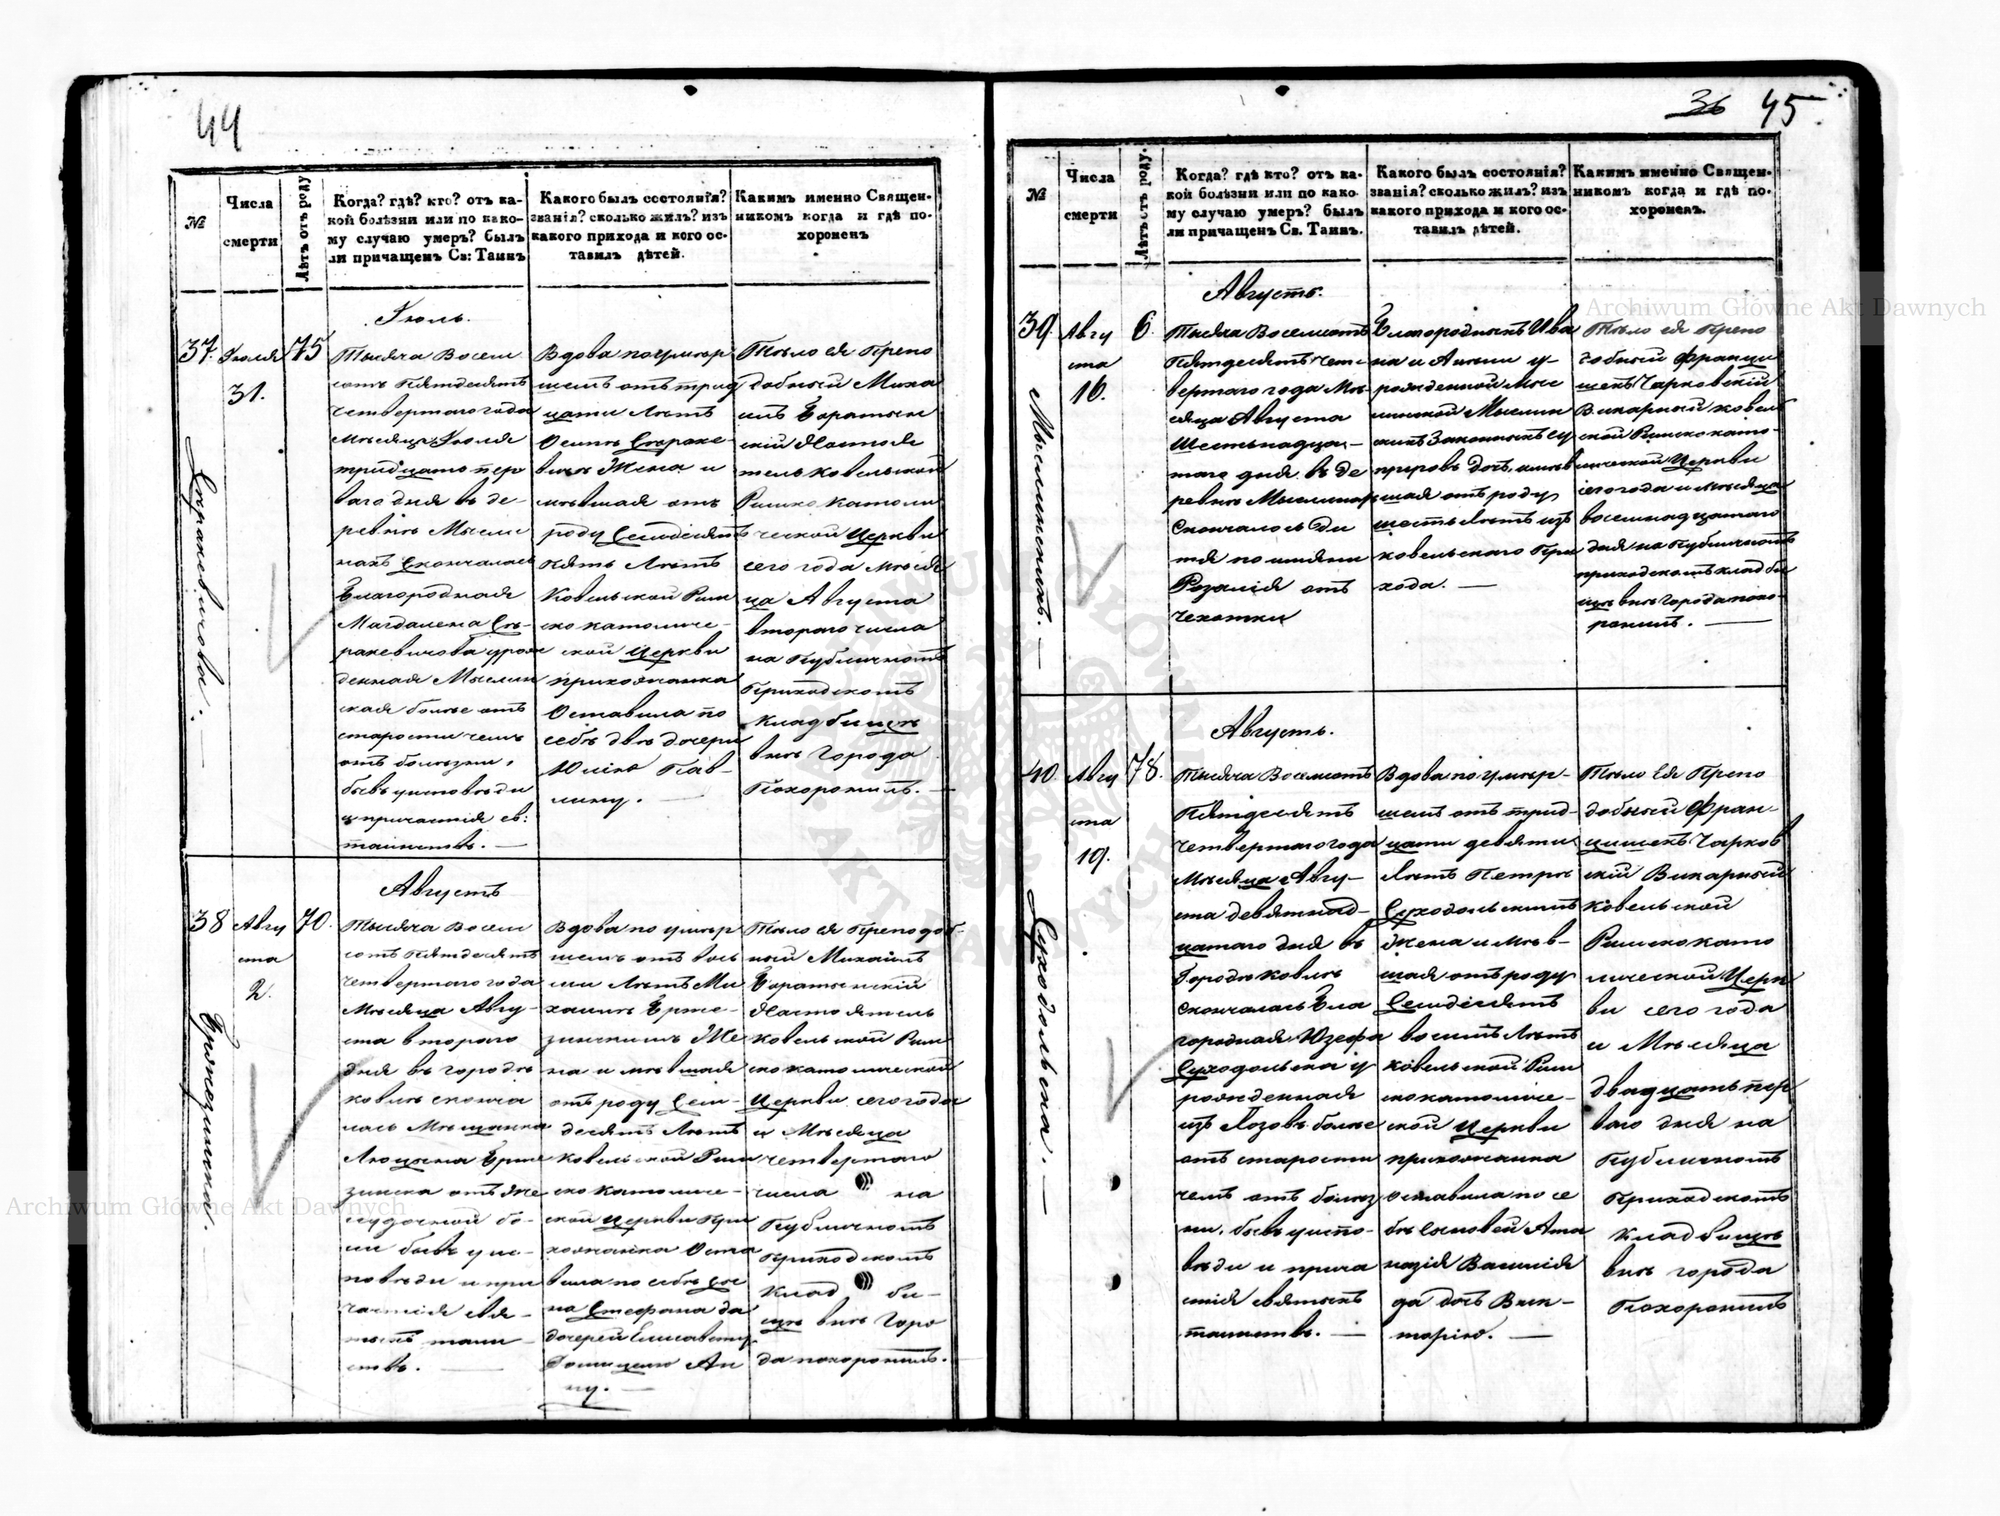 44
№
Числа
смерти
Лѣтъ отъ роду
Когда? гдѣ? кто? отъ ка-
кой болѣзни или по како-
му случаю умеръ? былъ
ли причащенъ Св: Таинъ
Какого былъ состоянія?
званія? сколько жилъ? изъ
какого прихода и кого ос-
тавилъ дѣтей.
Какимъ именно Священ-
никомъ когда и гдѣ по-
хороненъ
Іюль.
37.
Іюля
31.
75
Тысяча Восем
сотъ Пятдесятъ
четвертаго года
мѣсяца Іюля
тридцать пер
ваго дня въ де-
ревнѣ Мысли
нахъ Скончалась
Благородная
Магдалена
урож
денная Мыслин
ская болѣе отъ
старости чемъ
отъ болѣзни,
бывъ исповѣди
и причастія св:
таинствъ. —
Вдова по умер
шемъ отъ трид
цати лѣтъ
Осипѣ
Жена и
мѣвшая отъ
роду Семдесятъ
пять лѣтъ
Ковельской Рим
ско католиче-
ской Церкви
прихожанка
Оставила по
себѣ двѣ дочери
Юлію Пав-
лину. —
Тѣло ея Препо
добный Миха
илъ
скій Настоя
тель Ковельской
Римско Католи
ческой Церкви
сего года мѣся
ца Августа
втораго числа
на Публичномъ
Приходскомъ
кладбищѣ
внѣ города
Похоронилъ. —
Августъ
38
Авгу
ста
2.
70.
Тысяча Восем
сотъ Пятдесятъ
четвертаго года
Мѣсяца Авгу-
ста втораго
дня въ городѣ
Ковлѣ сконча
лась Мѣщанка
Люцына
отъ же
лудочной бо-
ли бывъ ис-
повѣди и при
частія свя-
тыхъ таин
ствъ. —
Вдова по умер
шемъ отъ вось
ми лѣтъ Ми
хаилѣ
Же
на и мѣвшая
отъ роду Сем-
десятъ лѣтъ
Ковельской Рим
ско католиче-
ской Церкви При
хожанка Оста
вила по себѣ сы
на Стефана да
дочерей Елисавету
Домицелю Ан
ну. —
Тѣло ея Преподоб-
ный Михаилъ
Настоятель
Ковельской Рим
ско католической
Церкви сего года
и Мѣсяца
четвертаго
числа на
Публичномъ
Приходскомъ
клад би-
щѣ внѣ Горо
да похоронилъ. —
36 45
№
Числа
смерти
Лѣтъ отъ роду.
Когда? гдѣ кто? отъ ка-
кой болѣзни или по како-
му случаю умеръ? былъ
ли причащенъ Св. Таинъ.
Какого былъ состоянія?
званія? сколько жилъ? изъ
какого прихода и кого ос-
тавилъ дѣтей.
Какимъ именно Священ-
никомъ когда и гдѣ по-
хороненъ.
Августъ.
39.
Авгу
ста
16.
6.
Мыслинскихъ. —
Тысяча Восемсотъ
Пятдесятъ чет-
вертаго года Мѣ-
сяца Августа
Шестьнадца-
таго дня въ де
ревнѣ Мыслинахъ
Скончалось Ди
тя по имени
Розалія отъ
чехотки
Благородныхъ Ива
на и Анны у
рожденной
Мыслин
скихъ Законныхъ Су
пруговъ дочь, имѣв
шая отъ роду
шесть лѣтъ изъ
Ковельскаго При
хода. —
Тѣло ея Препо
добный Франци
шекъ Чарковскій
Викарный Ковель
ской Римско като-
лической Церкви
сего года и мѣсяца
восемнадцатаго
дня на Публичномъ
приходскомъ кладби
щѣ внѣ города похо-
ронилъ. —
Августъ.
40.
Авгу
ста
19.
78.
Суходольска. —
Тысяча Восемсотъ
Пятдесятъ
четвертаго года
Мѣсяца Авгу-
ста девятнад-
цатаго дня въ
Городѣ Ковлѣ
Скончалась Бла
городная Юзефа
Суходольска у
рожденная
изъ Лозовъ болѣе
отъ старости
чемъ отъ болѣз
ни, бывъ испо-
вѣди и прича
стія святыхъ
таинствъ. —
Вдова по умер-
шемъ отъ трид-
цати девяти
лѣтъ Петрѣ
Суходольскимъ
Жена и мѣв-
шая отъ роду
Семдесятъ
восимъ лѣтъ
Ковельской Рим
ско католиче-
ской Церкви
прихожанка
Оставила по се
бѣ сыновей Ата
назія Василія
да дочь Вик-
торію. —
Тѣло Ея Препо
добный Фран-
цишекъ Чарков
скій Викарный
Ковельской
Римско като
лической Церк
ви сего года
и Мѣсяца
двадцать пер
ваго дня на
Публичномъ
Приходскомъ
кладбищѣ
внѣ города
Похоронилъ
Archiwum Główne Akt Dawnych
Archiwum Główne Akt Dawnych